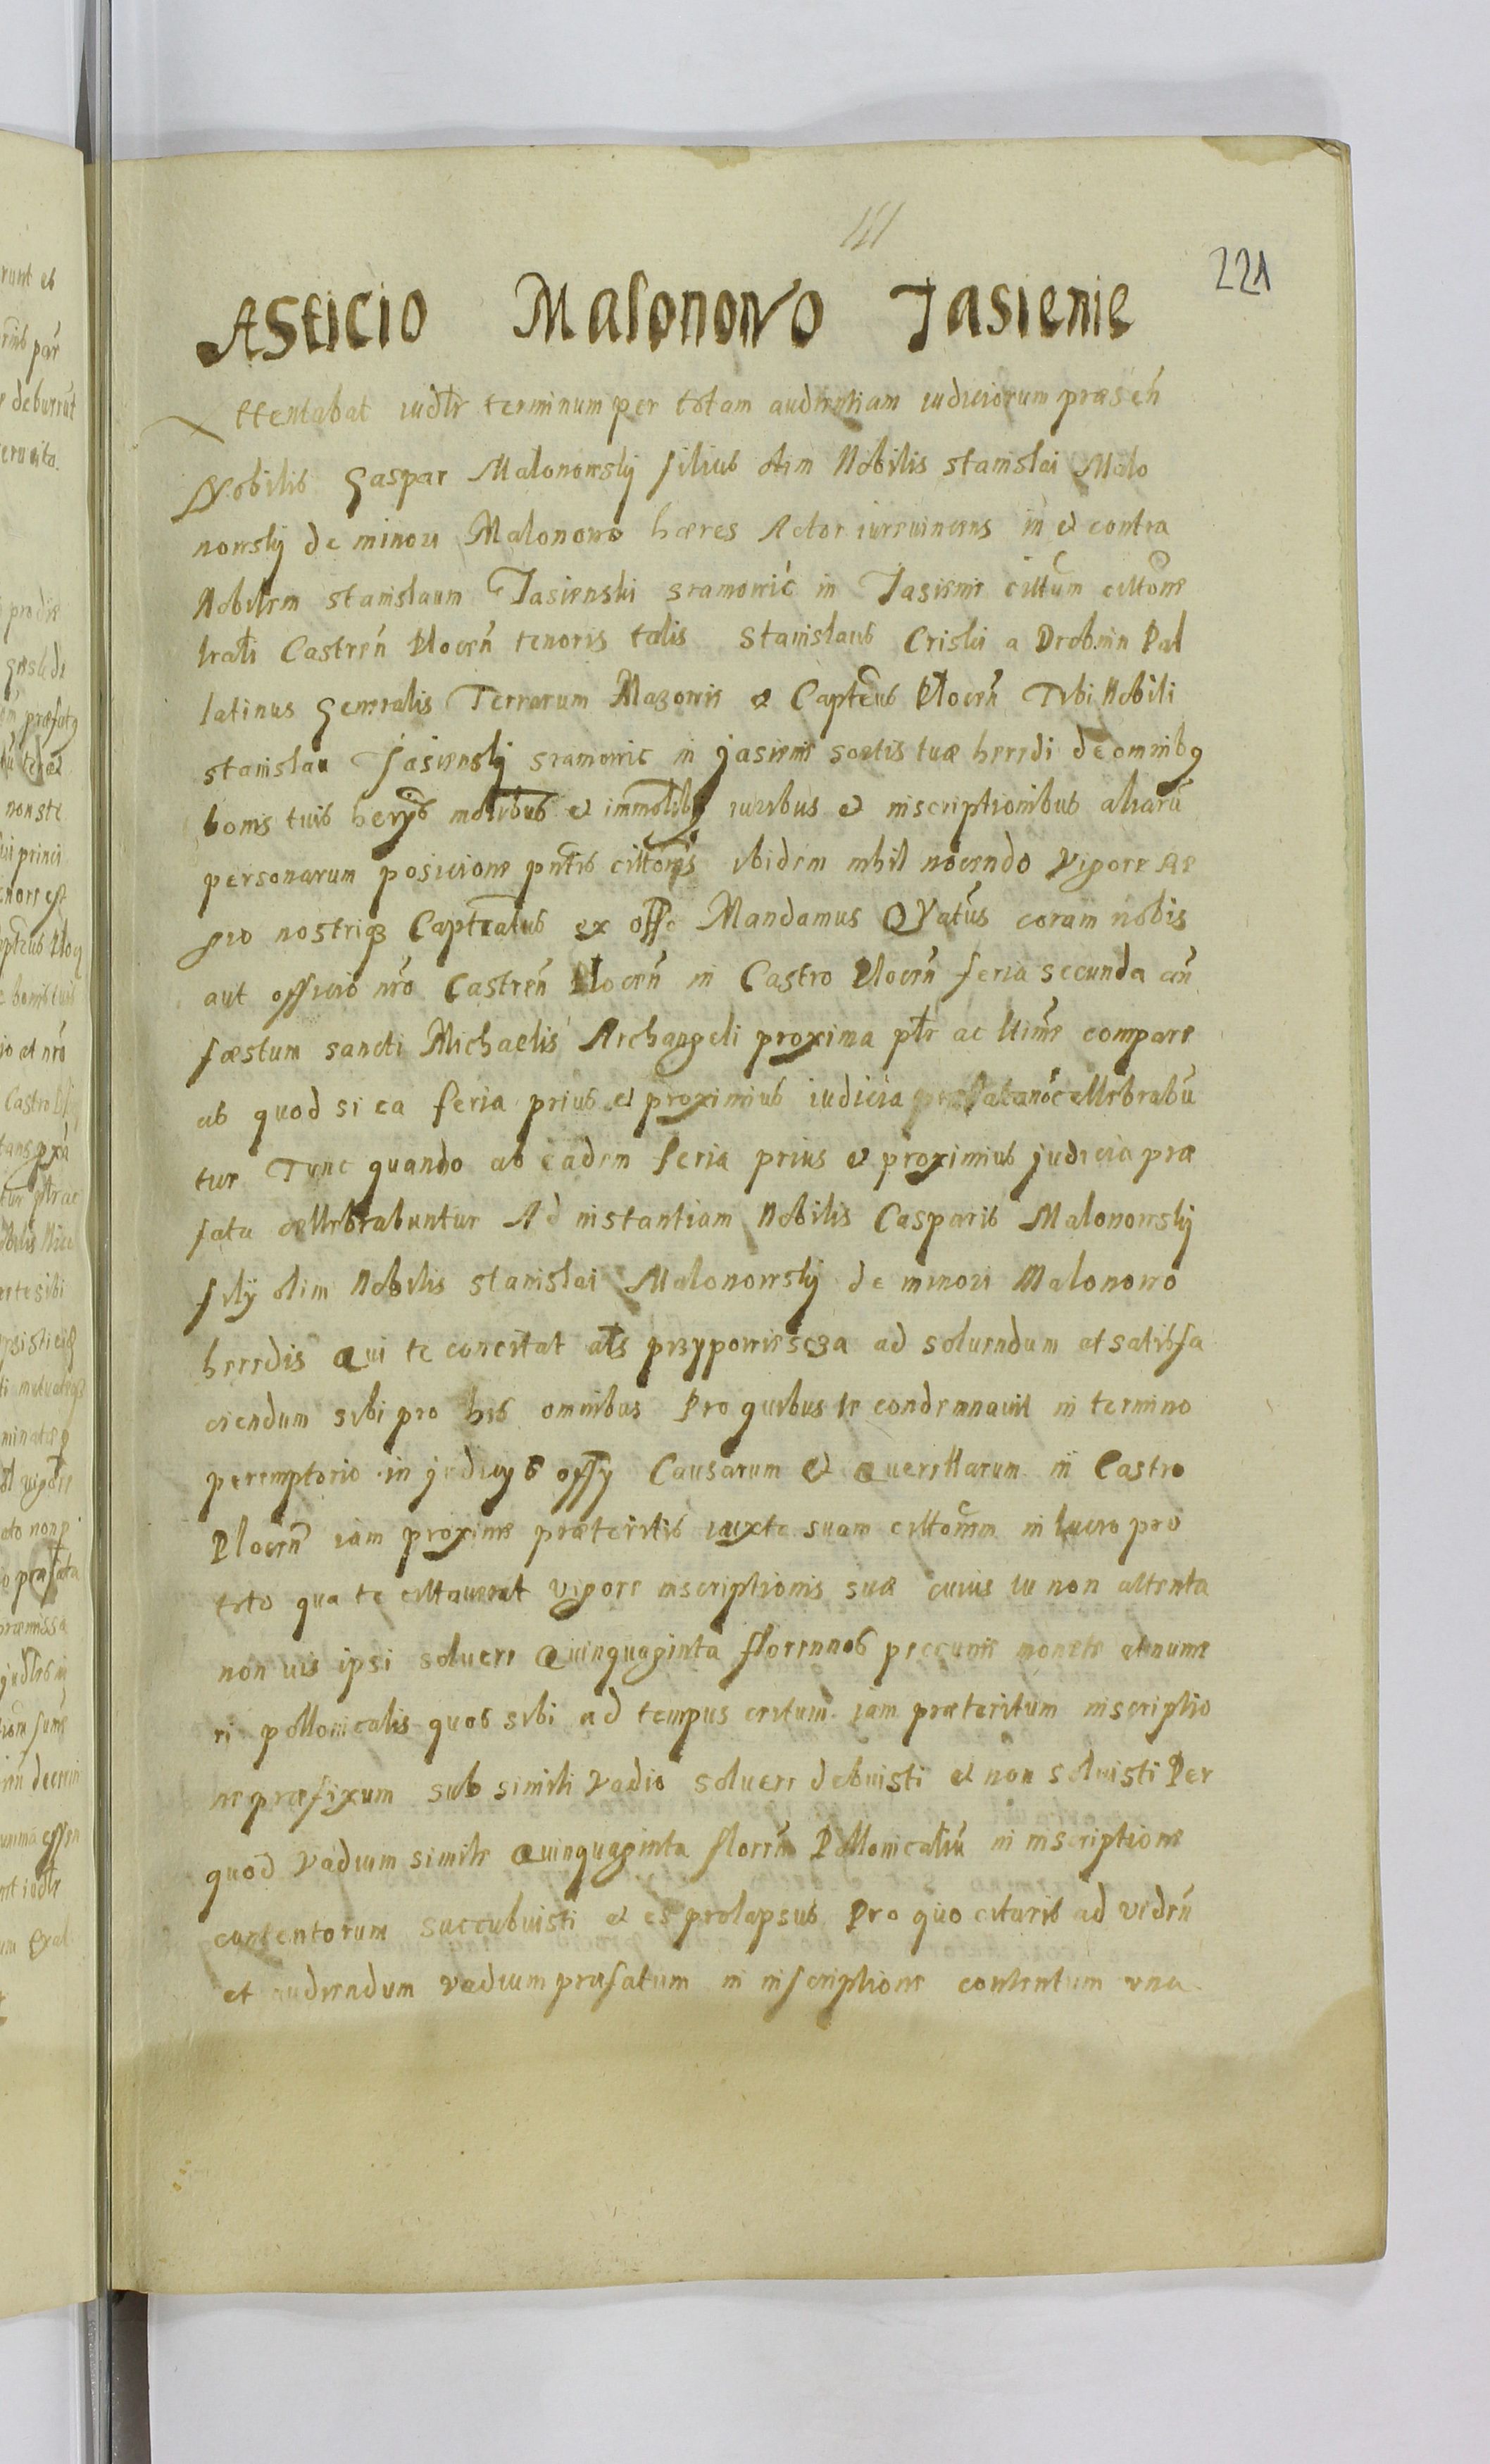 221
Asticio Malonowo Jasienie
Attentabat iudlr terminum per totam audientiam iudiciorum præsen̄
Nobilis Gaspar Malonowsky filius olim Nobilis stanislai Malo
nowsky de minori Malonowo hæres Actor iurevincens in et contra
Nobilem stanislaum Jasienski sramowic in Jasienie cittum cittone
Castren̄ Plocen̄ tenoris talis Stanislaus Criski a Drobnin Pal
latinus Generalis Terrarum Mazowie et Capteus Plocen̄ Tibi Nobili
stanislau Jasiensky sramowic in jasienie sortis tuæ heredi de omnibq
bonis tuis herijs mobibus et immolibq iuribus et inscriptionibus aliarū
personarum posicione pntis cittonis ibidem nihil nocendo Vigore Re
gio nostriqz Capteatus ex offo Mandamus QVatus coram nobis
aut officio nrō Castren̄ Plocen̄ in Castro Plocen̄ feria secunda an̄
fæstum sancti Michaelis Archangeli proxima ptr ac ltime compare
as quod si ea feria prius et proximius iudicia præfata nō cellebrabū
tur Tunc quando ab eadem feria prius et proximius judicia præ
fata cællebrabuntur Ad instantiam Nobilis Casparis Malonowsky
fily olim Nobilis stanislai Malonowsky de minori Malonowo
heredis Qui te concitat als przypowiescza ad soluendum et satisfa
ciendum sibi pro his omnibus Pro quibus te condemnauit in termino
peremptorio in judicys offy Causarum et Querellarum in Castro
Plocen̄ iam proxime præteritis iuxta suam cittonem in lucro pro
toto qua te cittauerat vigore inscriptionis suæ cuius tu non attenta
non uis ipsi soluere Quinquaginta florennos peccunie monete et nume
ri pollonicalis quos sibi ad tempus certum iam præteritum inscriptio
ne præfixum sub simili Vadio soluere debuisti et non soluisti Per
quod Vadium simile Quinquaginta floren̄ Pollonicaliū in inscriptione
contentorum succubuisti et es prolapsus Pro quo citaris ad viden̄
et audiendum vadium præfatum in inscriptione contentum una